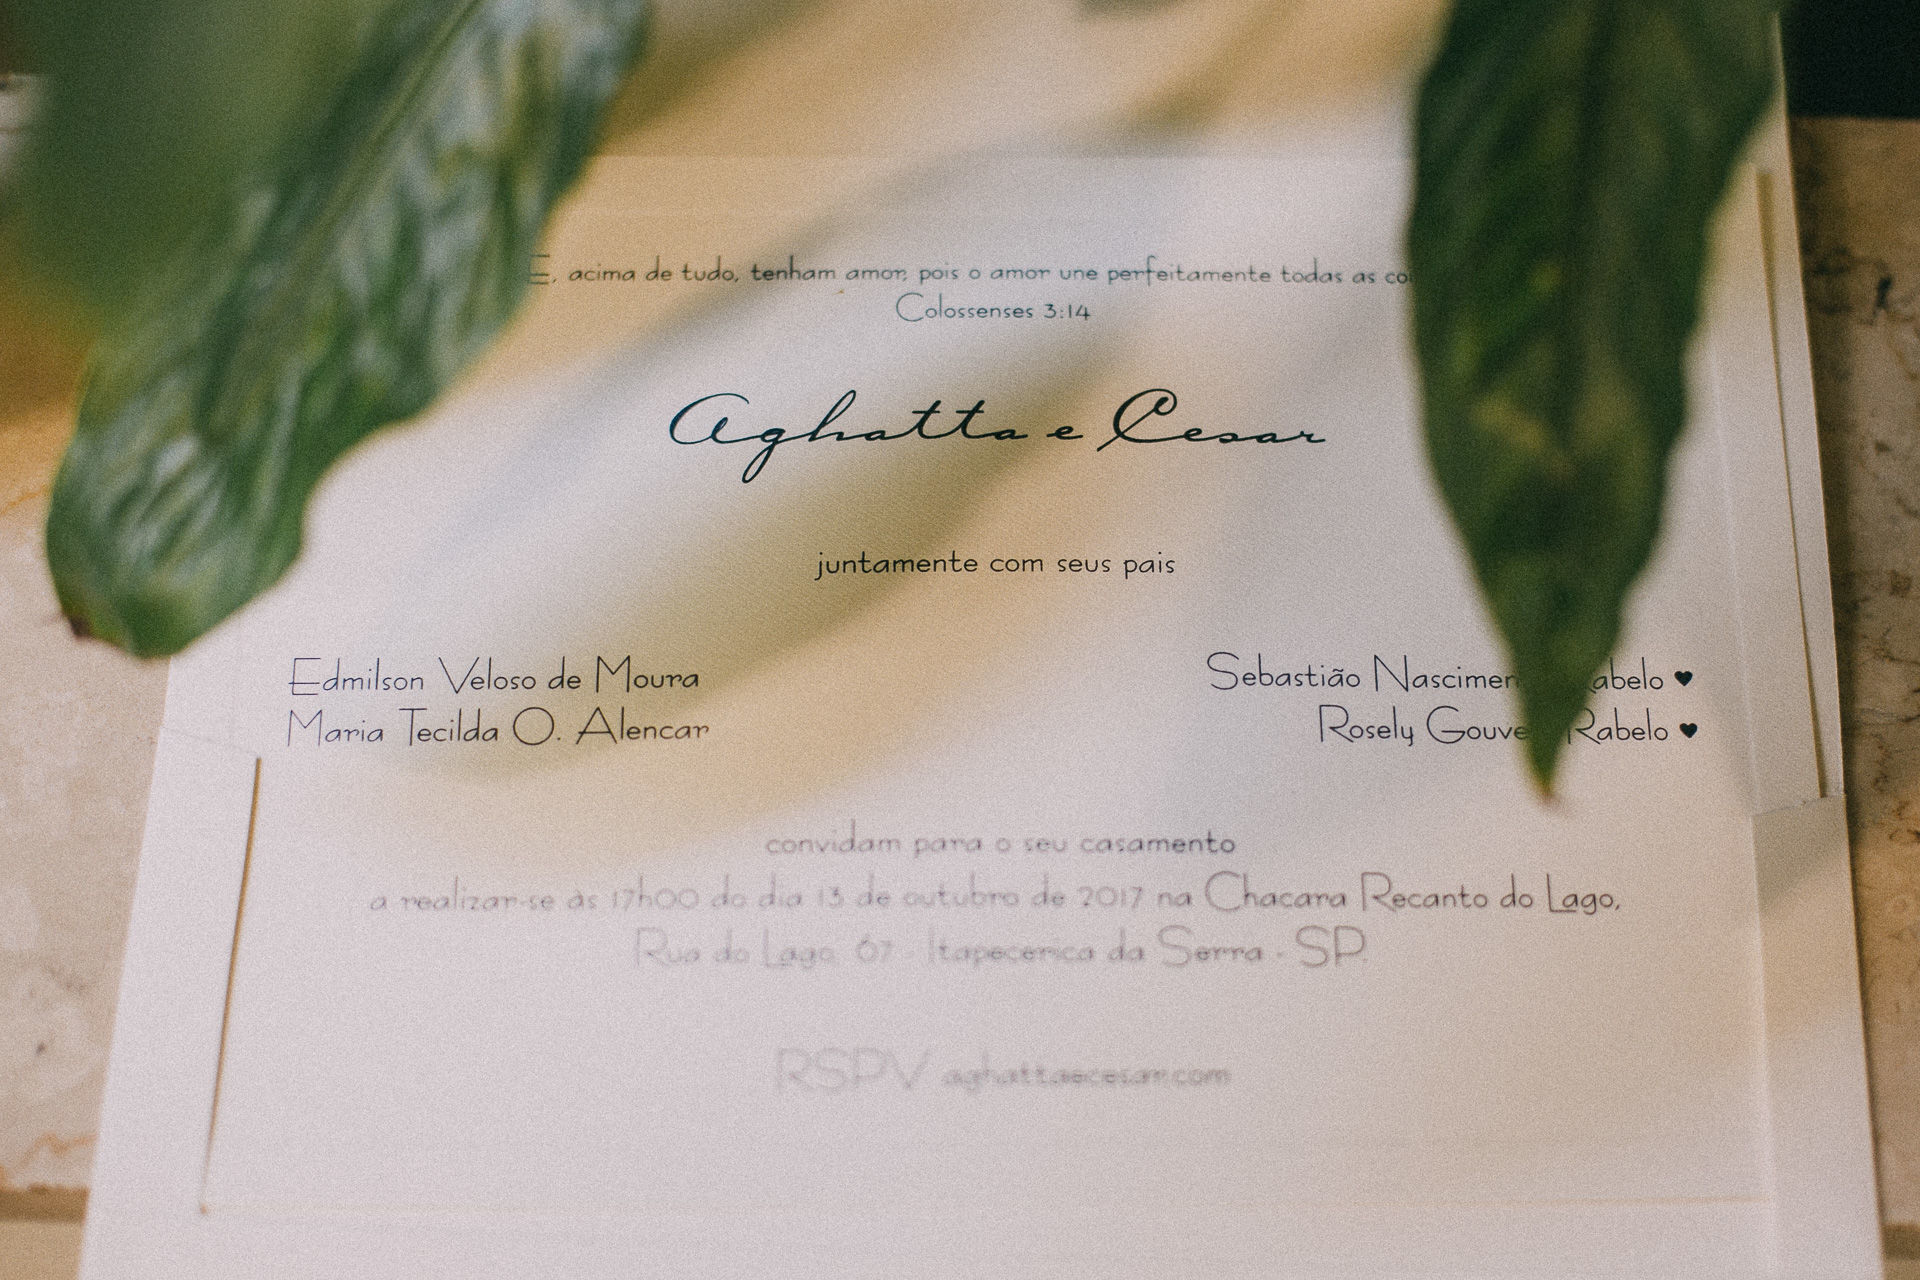 E, acima de tudo, tenham amor, pois o amor une perfeitamente todas as
Colossenses 3:14
Aghatta e Cesar
juntamente com seus pais
Edmilson Veloso de Moura
Maria Tecilda O. Alencar
Sebastião Rabelo ♥
Rosely Rabelo ♥
convidam para o seu casamento
a realizar-se às 17h00 do dia 13 de outubro de 2017 na Chacara Recanto do Lago,
Rua do Lago, 67 - Itapecerica da Serra - SP.
RSPV aghattaecesar.com